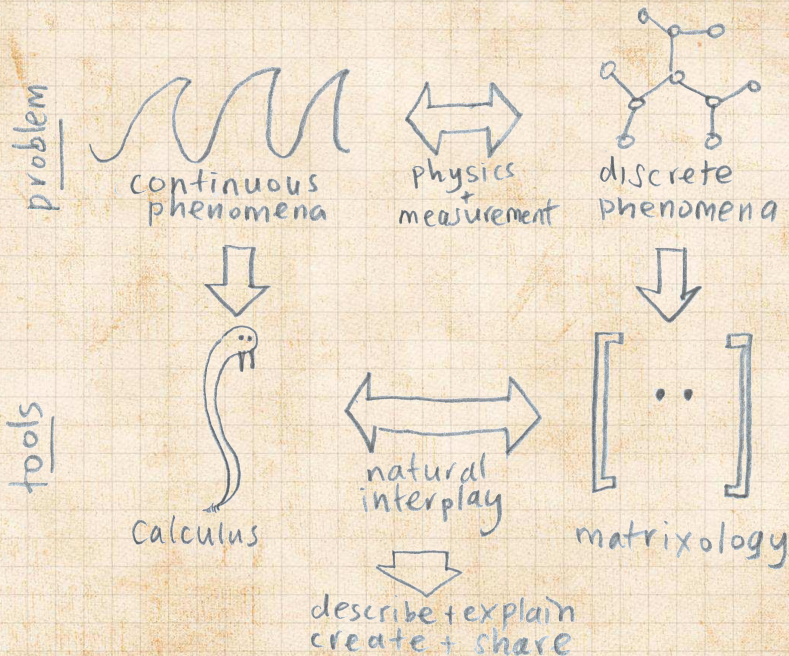 problem
continuous
phenomena
physics
+
measurement
discrete
phenomena
tools
Calculus
natural
interplay
matrixology
describe + explain
create + share